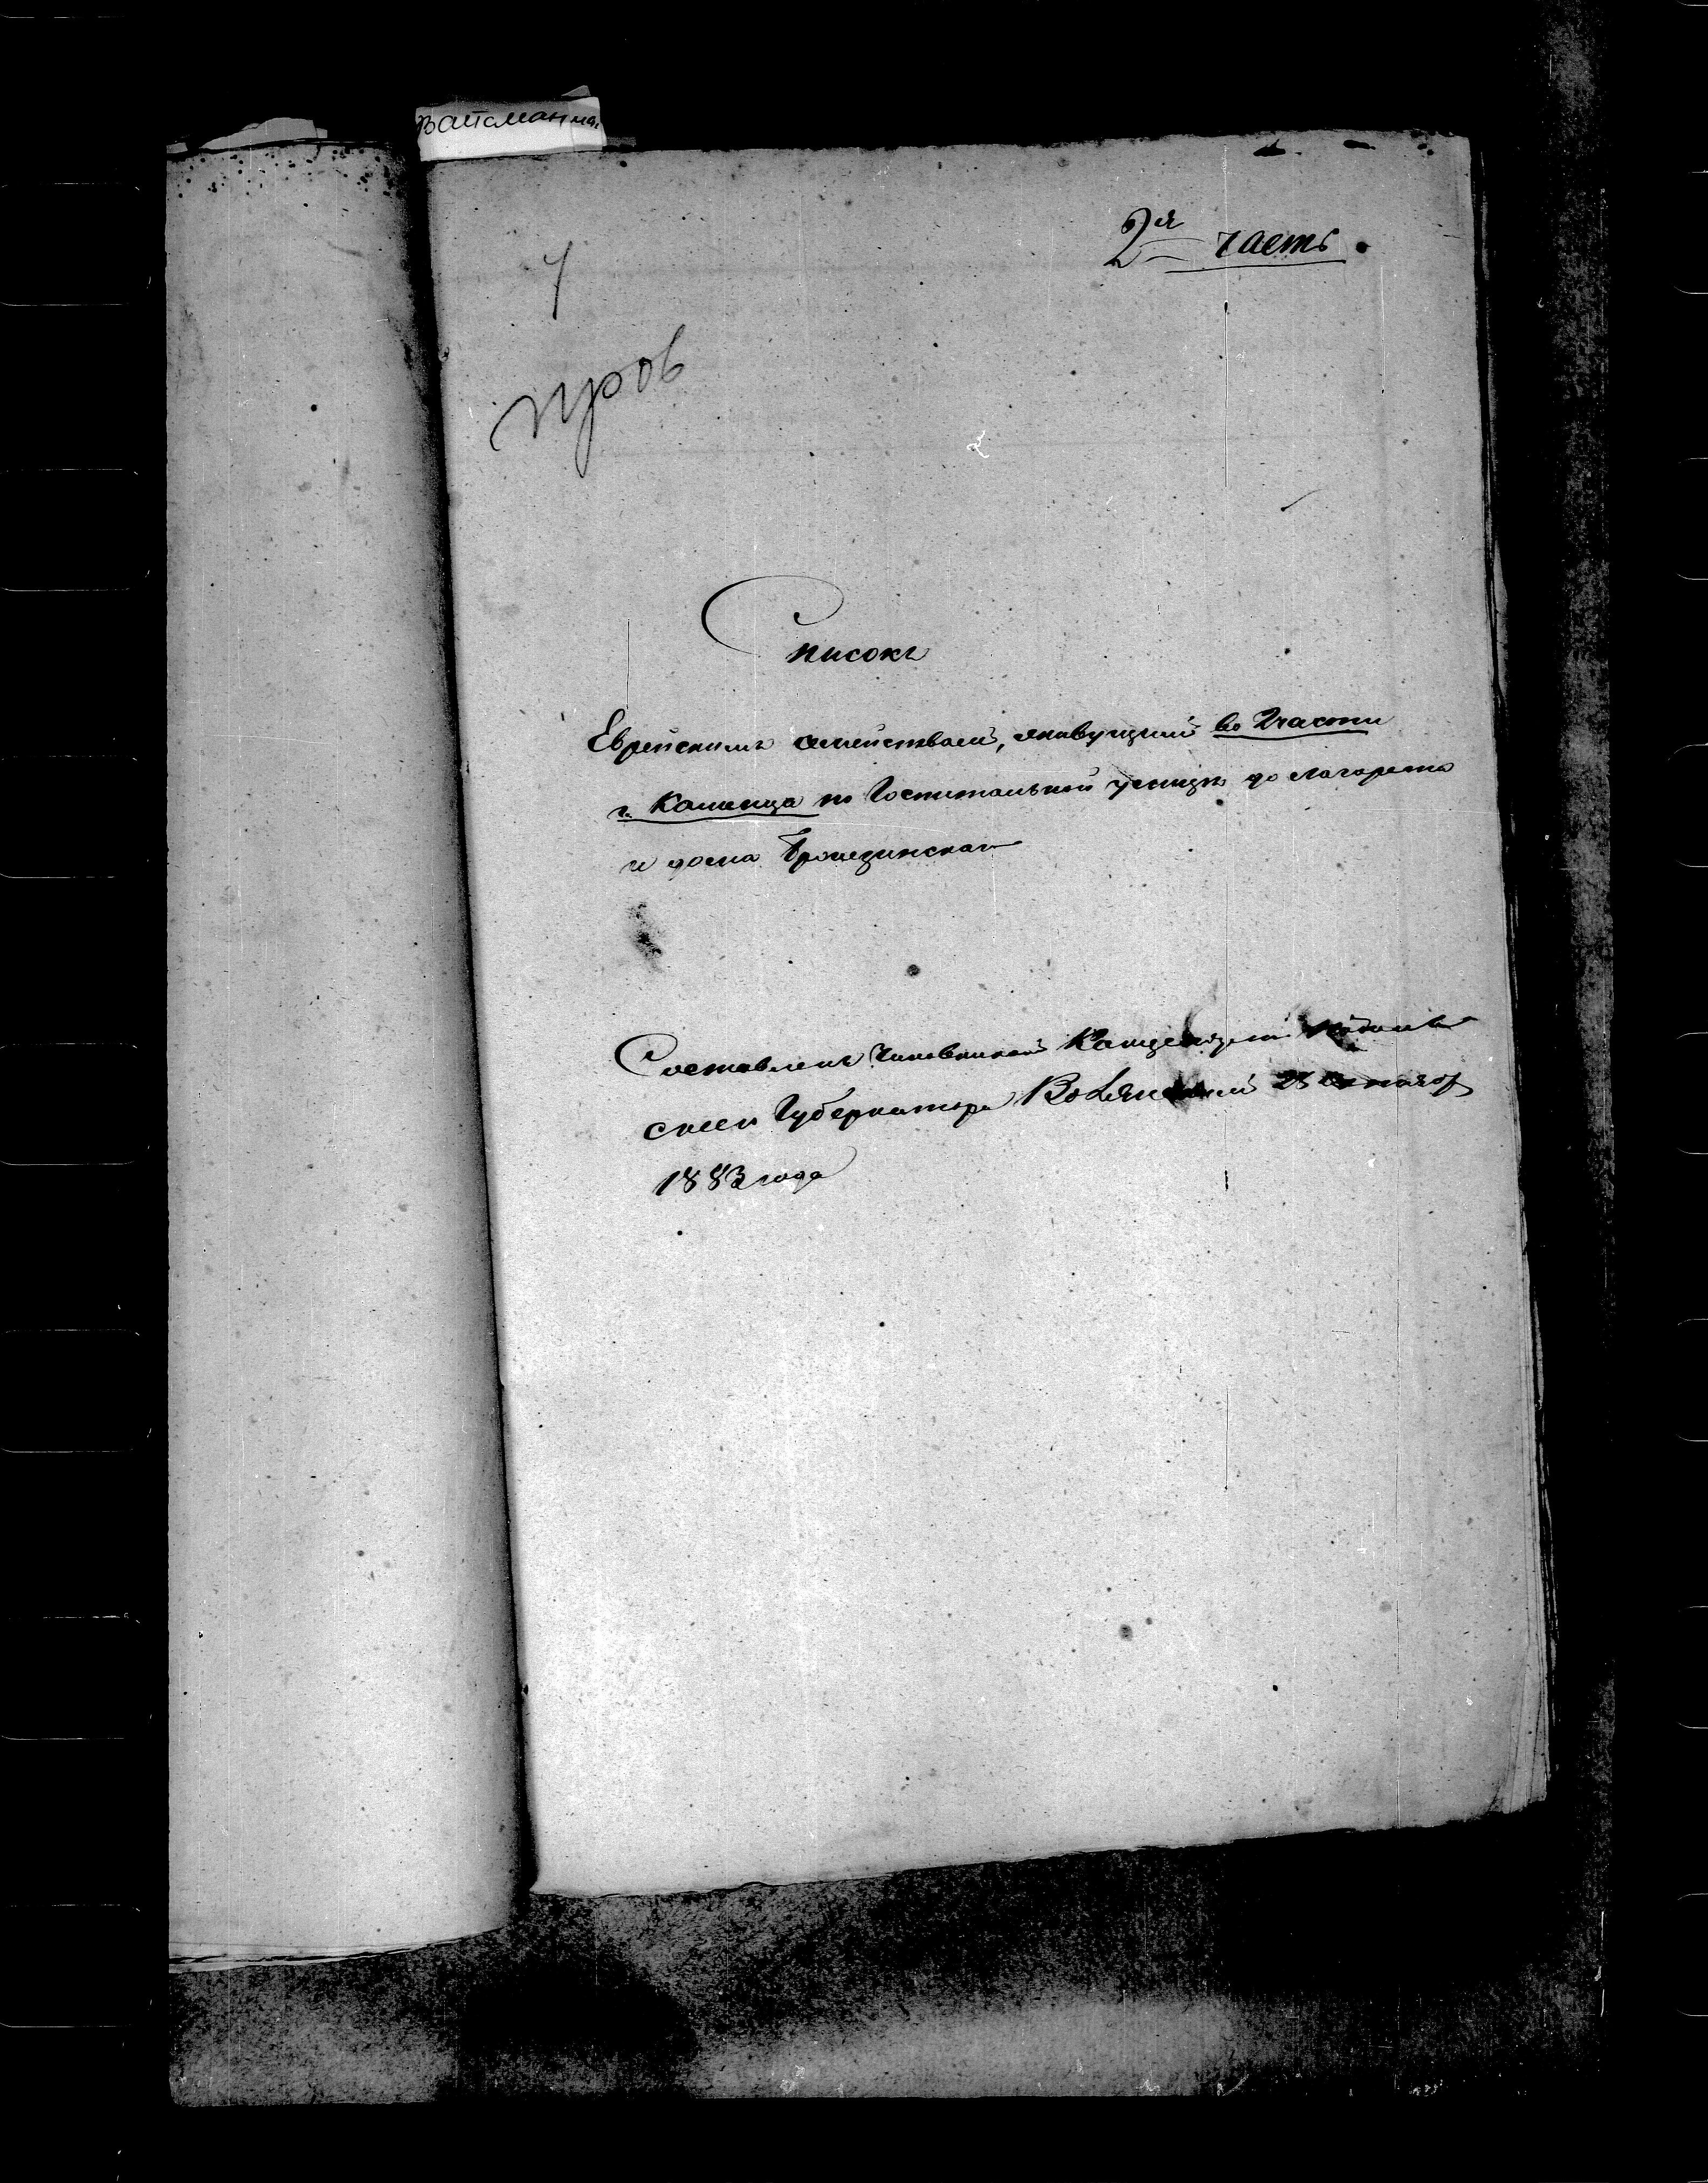 Вайсман
2ая часть.
пров
Списокъ
Еврейскимъ семействамъ, живущимъ во 2 части
г. Каменца по Госпитальной улицѣ до Лазарета
и дома
Составленъ Чиновникомъ Канцеляріи Подоль
скаго Губернатора 25 Октября
1883 года